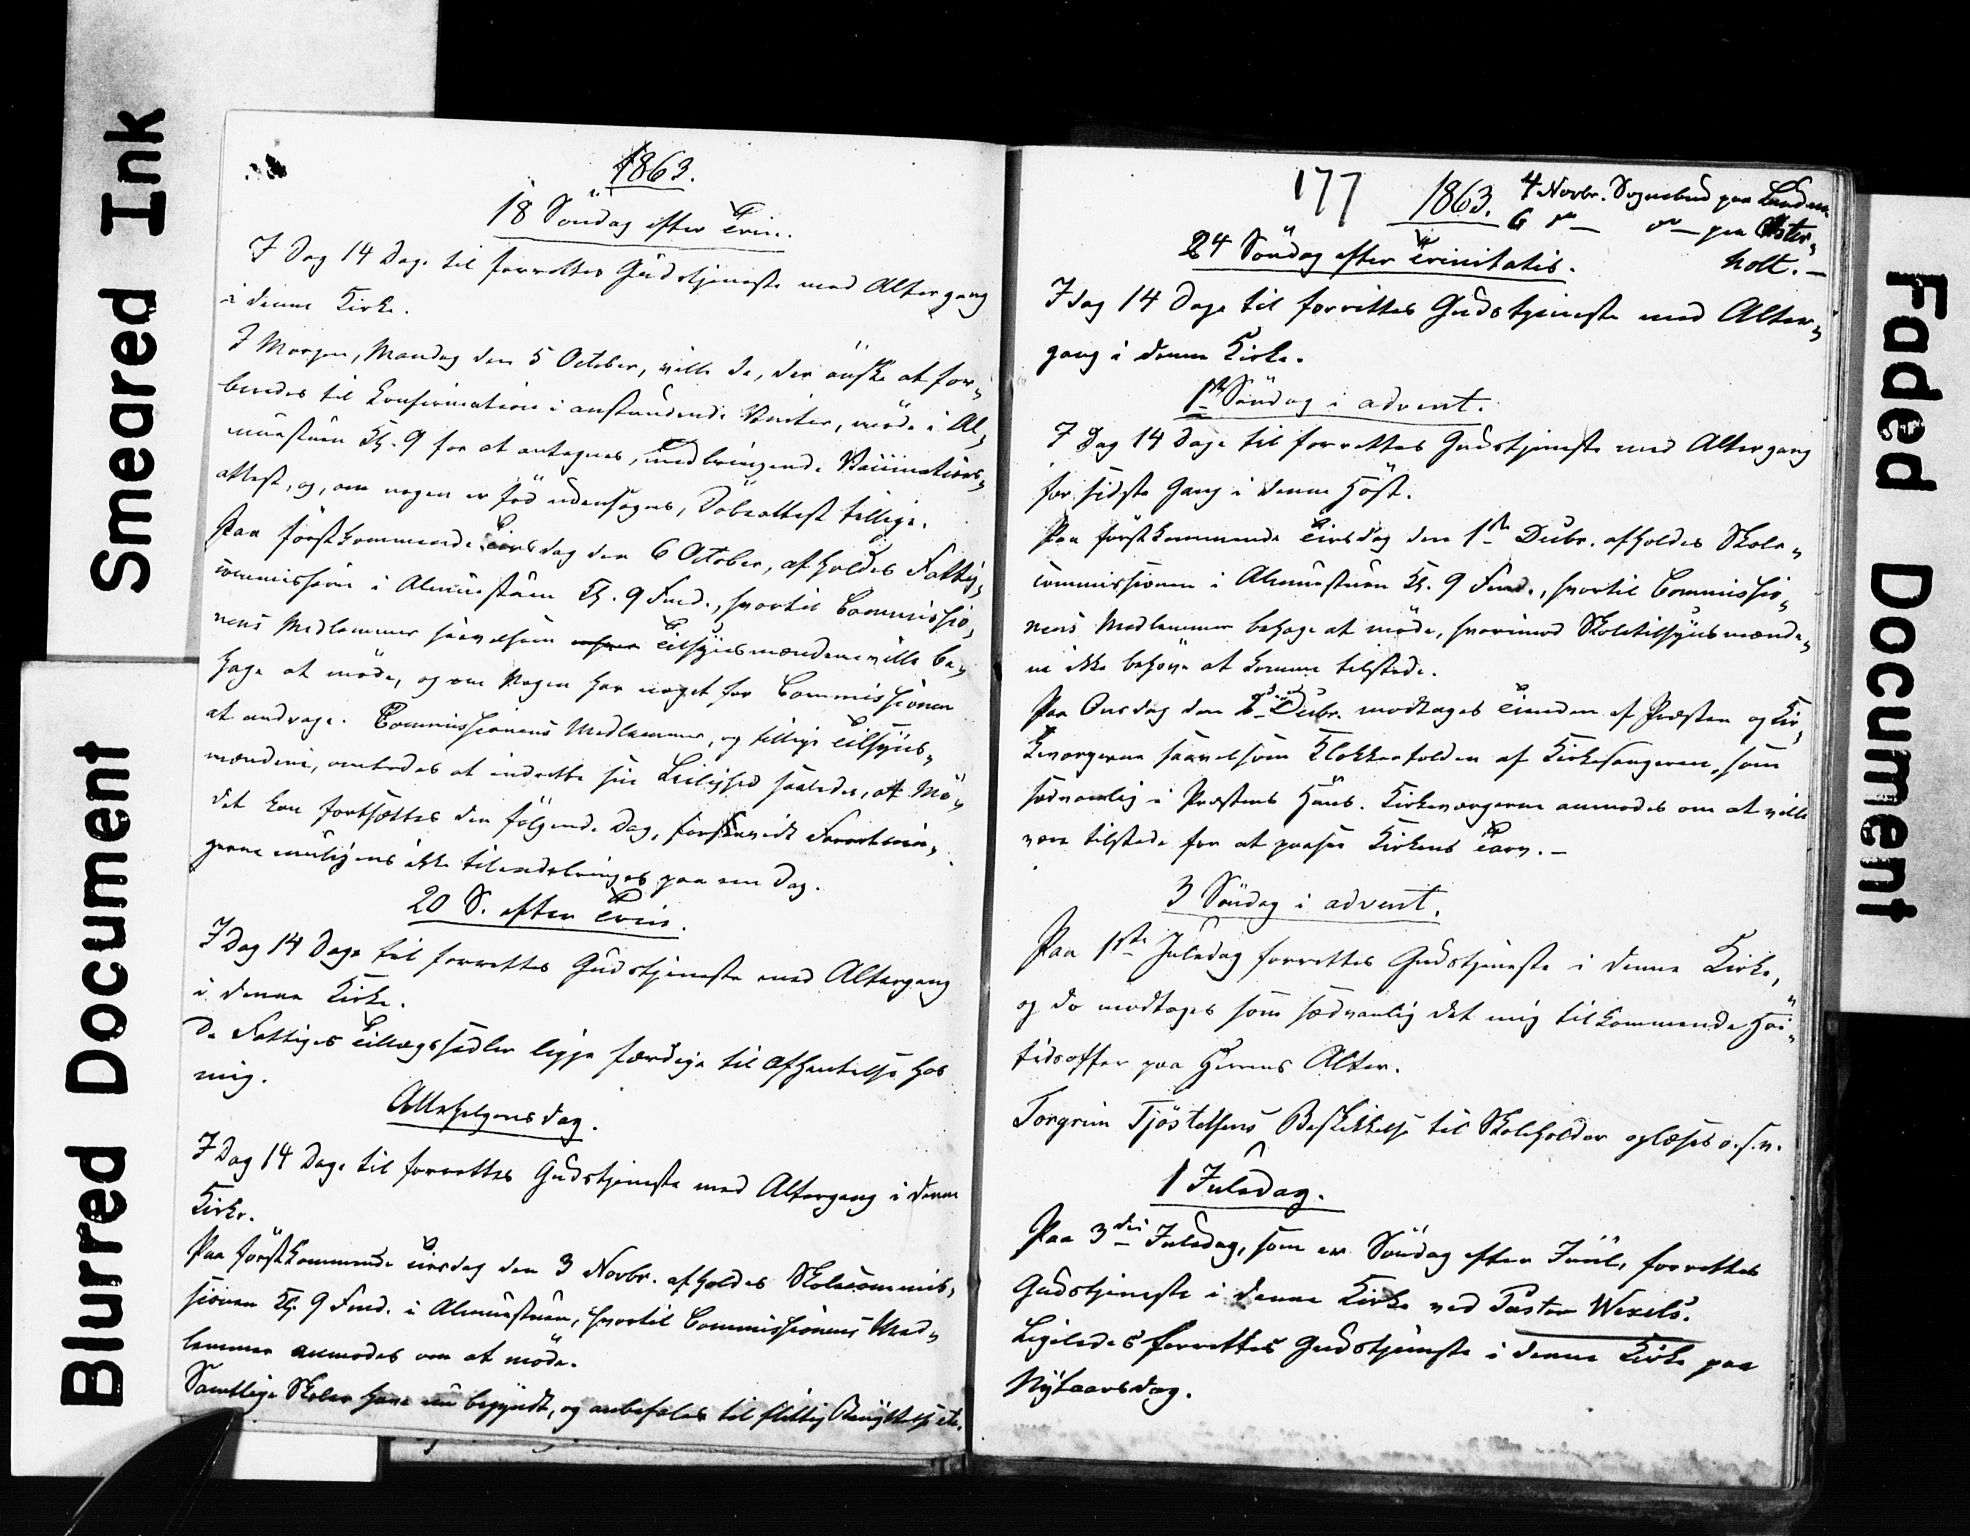 Smeared Ink
Blurred Document
Faded Document
1863.
18 Söndag efter Trin.
I Dag 14 Dage til forrettes Gudstjeneste med Altergang
i denne Kirke.
I Morgen, Mandag den 5 October, ville de, der önske at for-
beredes til Confirmation i anstundende Vinter, möde i Al-
muestuen Kl. 9 for at antegnes, medbringende Vaccinations-
attest, og, om nogen er föd udensogns, Döbeattest tillige.
Paa förstkommende Tirsdag den 6 October, afholdes Fattig-
commission i Almuestuen Kl. 9 Fmd., hvortil Commissio-
nens Medlemmer saavelsom Tilsynsmændene ville be-
hage at möde, og om Nogen har noget for Commissionen
at andrage. Commissionens Medlemmer, og tillige Tilsyns-
mændene, ombedes at indrette sin Leilighed saaledes, at Mö-
det kan fortsættes den fölgende Dag, forsaavidt Forretnin-
gerne muligens ikke tilendebringes paa een Dag.
20 S. efter Trin.
I Dag 14 Dage til forrettes Gudstjeneste med Altergang
i denne Kirke.
De Fattiges Tillægssedler ligge færdige til Afhentelse hos
mig.
Allehelgensdag.
I Dag 14 Dage til forrettes Gudstjeneste med Altergang i denne
Kirke.
Paa förstkommende Tirsdag den 3 Novbr. afholdes Skolecommis-
sionen Kl. 9 Fmd. i Almuestuen, hvortil Commissionens Med-
lemmer anmodes om at möde.
Samtlige Skoler have nu begyndt, og anbefales til flittig Benyttelse etc.
177
1863.
4 Novbr. Sognebud paa
6 d— d— paa Øster-
holt.—
24 Söndag efter Trinitatis.
I dag 14 Dage til forrettes Gudstjeneste med Alter-
gang i denne Kirke.
1ste Söndag i advent.
I Dag 14 Dage til forrettes Gudstjeneste med Altergang
for sidste Gang i denne Höst.
Paa förstkommende Tirsdag den 1ste Decbr. afholdes Skole-
commissionen i Almuestuen Kl. 9 Fmd., hvortil Commissio-
nens Medlemmer behage at möde, hvorimod Skoletilsynsmænde-
ne ikke behöve at komme tilstede.
Paa Onsdag den 2den Decbr. modtages Tienden af Præsten og Kir-
keværgerne saavelsom Klokkertolden af Kirkesangeren, som
sædvanlig i Præstens Huus. Kirkeværgerne anmodes om at ville
være tilstede for at paase Kirkens Tarv.—
3 Söndag i advent.
Paa 1ste Juledag forrettes Gudstjeneste i denne Kirke,
og da modtages som sædvanlig det mig tilkommende Höi-
tidsoffer paa Herrens Alter.
Torgrim Tjöstelsens Beskikkelse til Skoleholder oplæses o.s.v.
1 Juledag.
Paa 3die Juledag, som er Söndag efter Juul, forrettes
Gudstjeneste i denne Kirke ved Pastor Wexels.
Ligeledes forrettes Gudstjeneste i denne Kirke paa
Nytaarsdag.